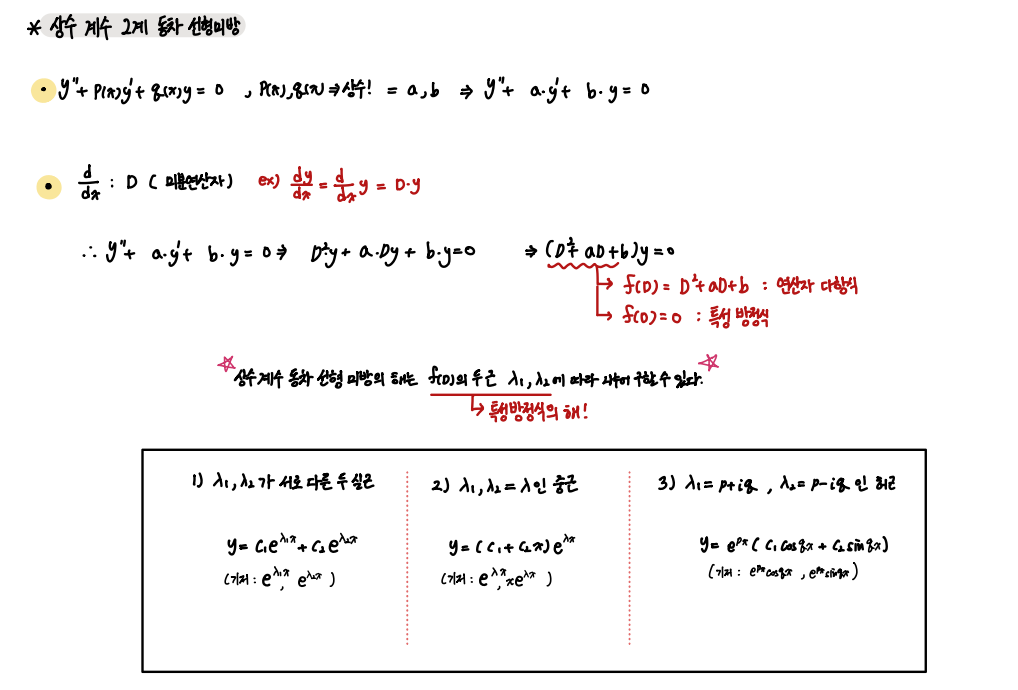 * 상수 계수 2계 동차 선형미방
• y''+ p(x)y'+ q(x)y = 0 , p(x), q(x) ⇒ 상수! = a, b ⇒ y''+ a·y'+ b·y = 0
• d/dx : D ( 미분연산자 ) ex) dy/dx = d/dx y = D·y
∴ y''+ a·y'+ b·y = 0 ⇒ D²·y + a·Dy + b·y = 0 ⇒ (D²+ aD+b)y = 0
↳ f(D) = D²+aD+b : 연산자 다항식
↳ f(D) = 0 : 특성 방정식
☆ 상수계수 동차 선형 미방의 해는 f(D)의 두근 λ₁, λ₂에 따라 구할 수 있다. ☆
↳ 특성방정식의 해!
1) λ₁, λ₂가 서로 다른 두 실근
y = c₁e^{λ₁x} + c₂e^{λ₂x}
(기저 : e^{λ₁x}, e^{λ₂x} )
2) λ₁, λ₂ = λ 인 중근
y = ( c₁ + c₂x ) e^{λx}
(기저 : e^{λx}, xe^{λx} )
3) λ₁ = p+iq , λ₂ = p-iq 인 허근
y = e^{px} ( c₁ cos qx + c₂ sin qx )
(기저 : e^{px} cos qx , e^{px} sin qx )